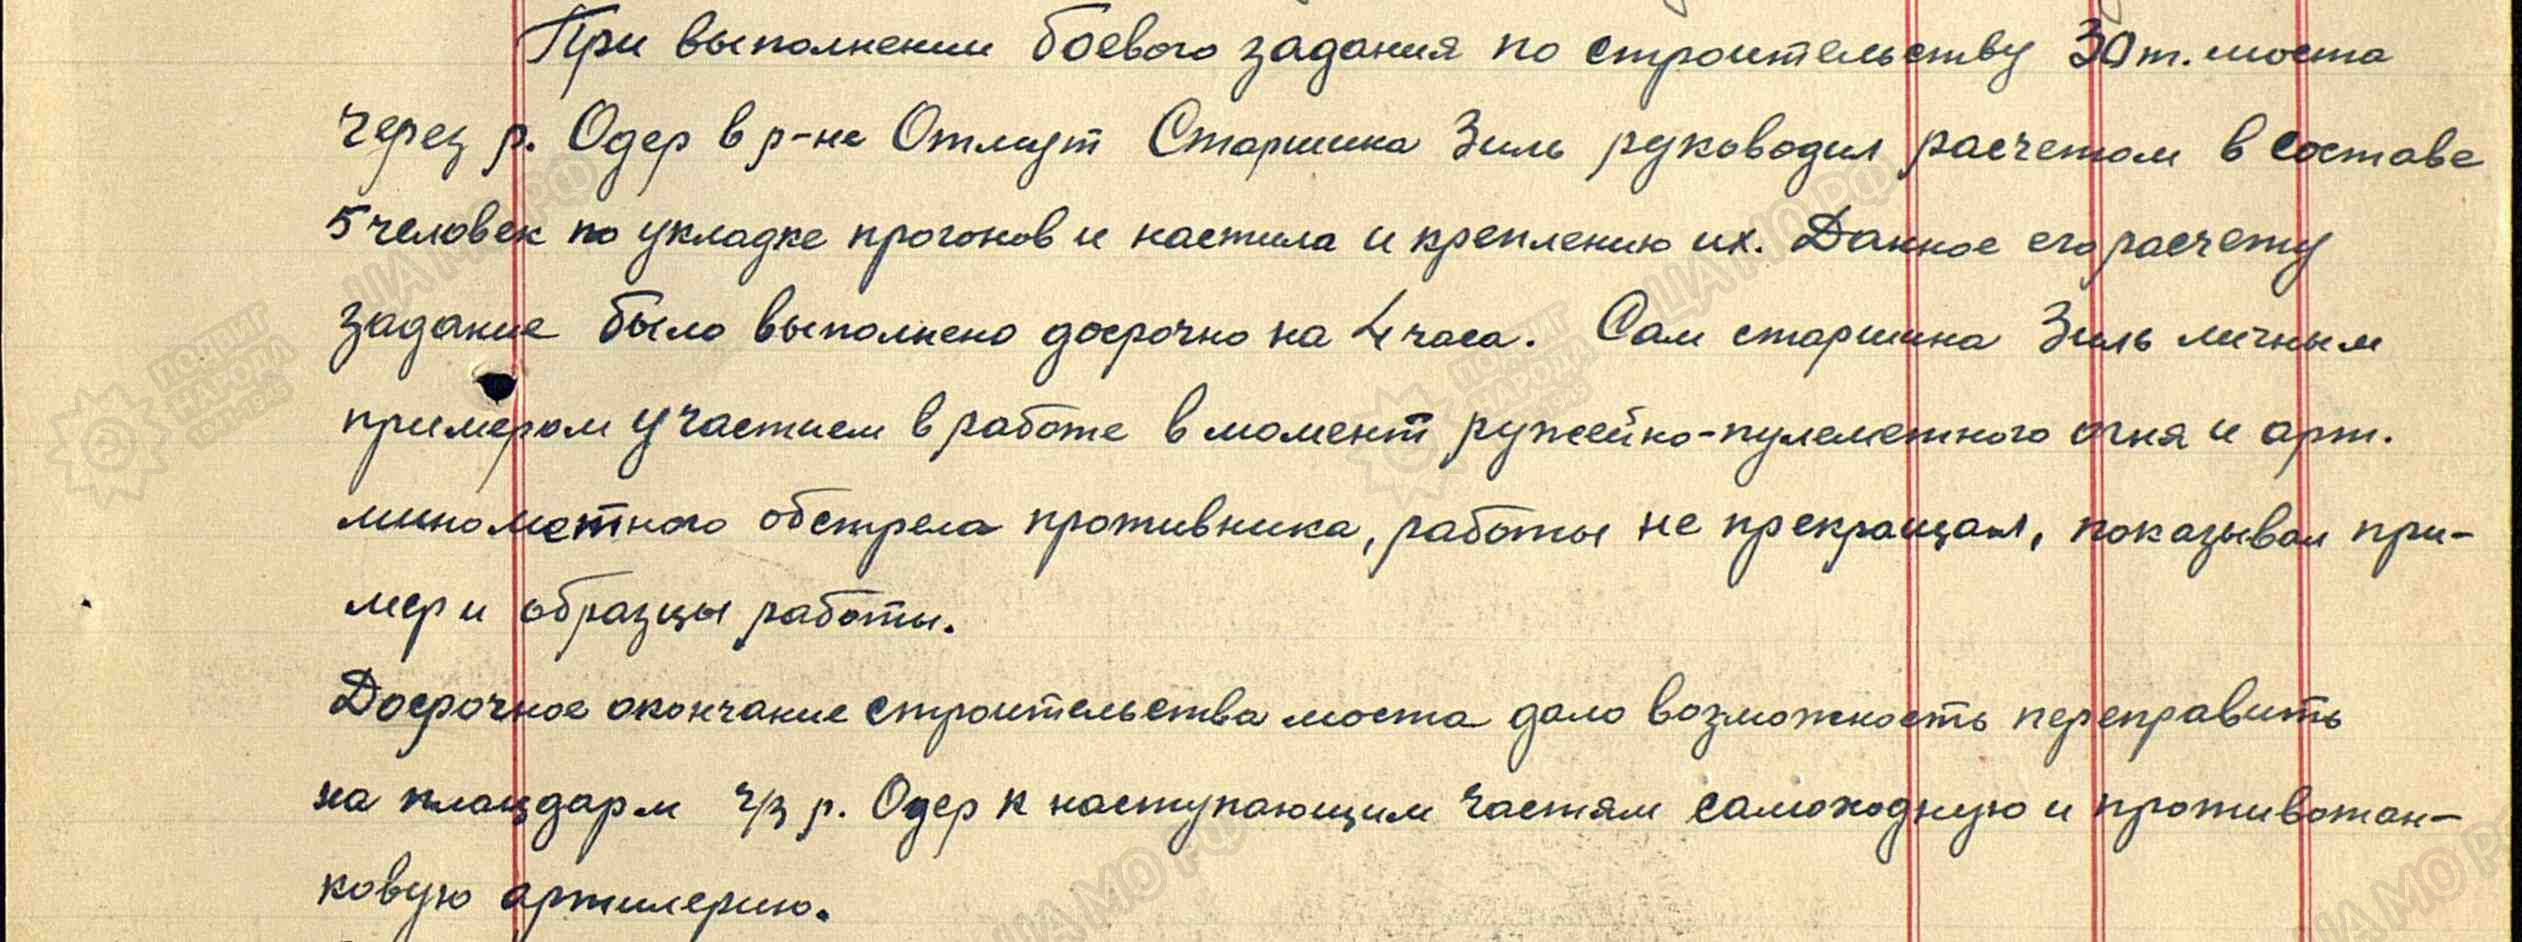 При выполнении боевого задания по строительству 30т. моста
через р. Одер в р-не Отмут Старшина Зиль руководил расчетом в составе
5 человек по укладке прогонов и настила и креплению их. Данное его расчету
задание было выполнено досрочно на 4 часа. Сам старшина Зиль личным
примером участием в работе в момент ружейно-пулеметного огня и арт.
минометного обстрела противника, работы не прекращал, показывал при-
мер и образцы работы.
Досрочное окончание строительства моста дало возможность переправить
на плацдарм ч/з р. Одер к наступающим частям самоходную и противотан-
ковую артилерию.
ЦАМО РФ
ЦАМО РФ
ПОДВИГ
НАРОДА
1941-1945
ПОДВИГ
НАРОДА
1941-1945
ЦАМО РФ
ЦАМО РФ